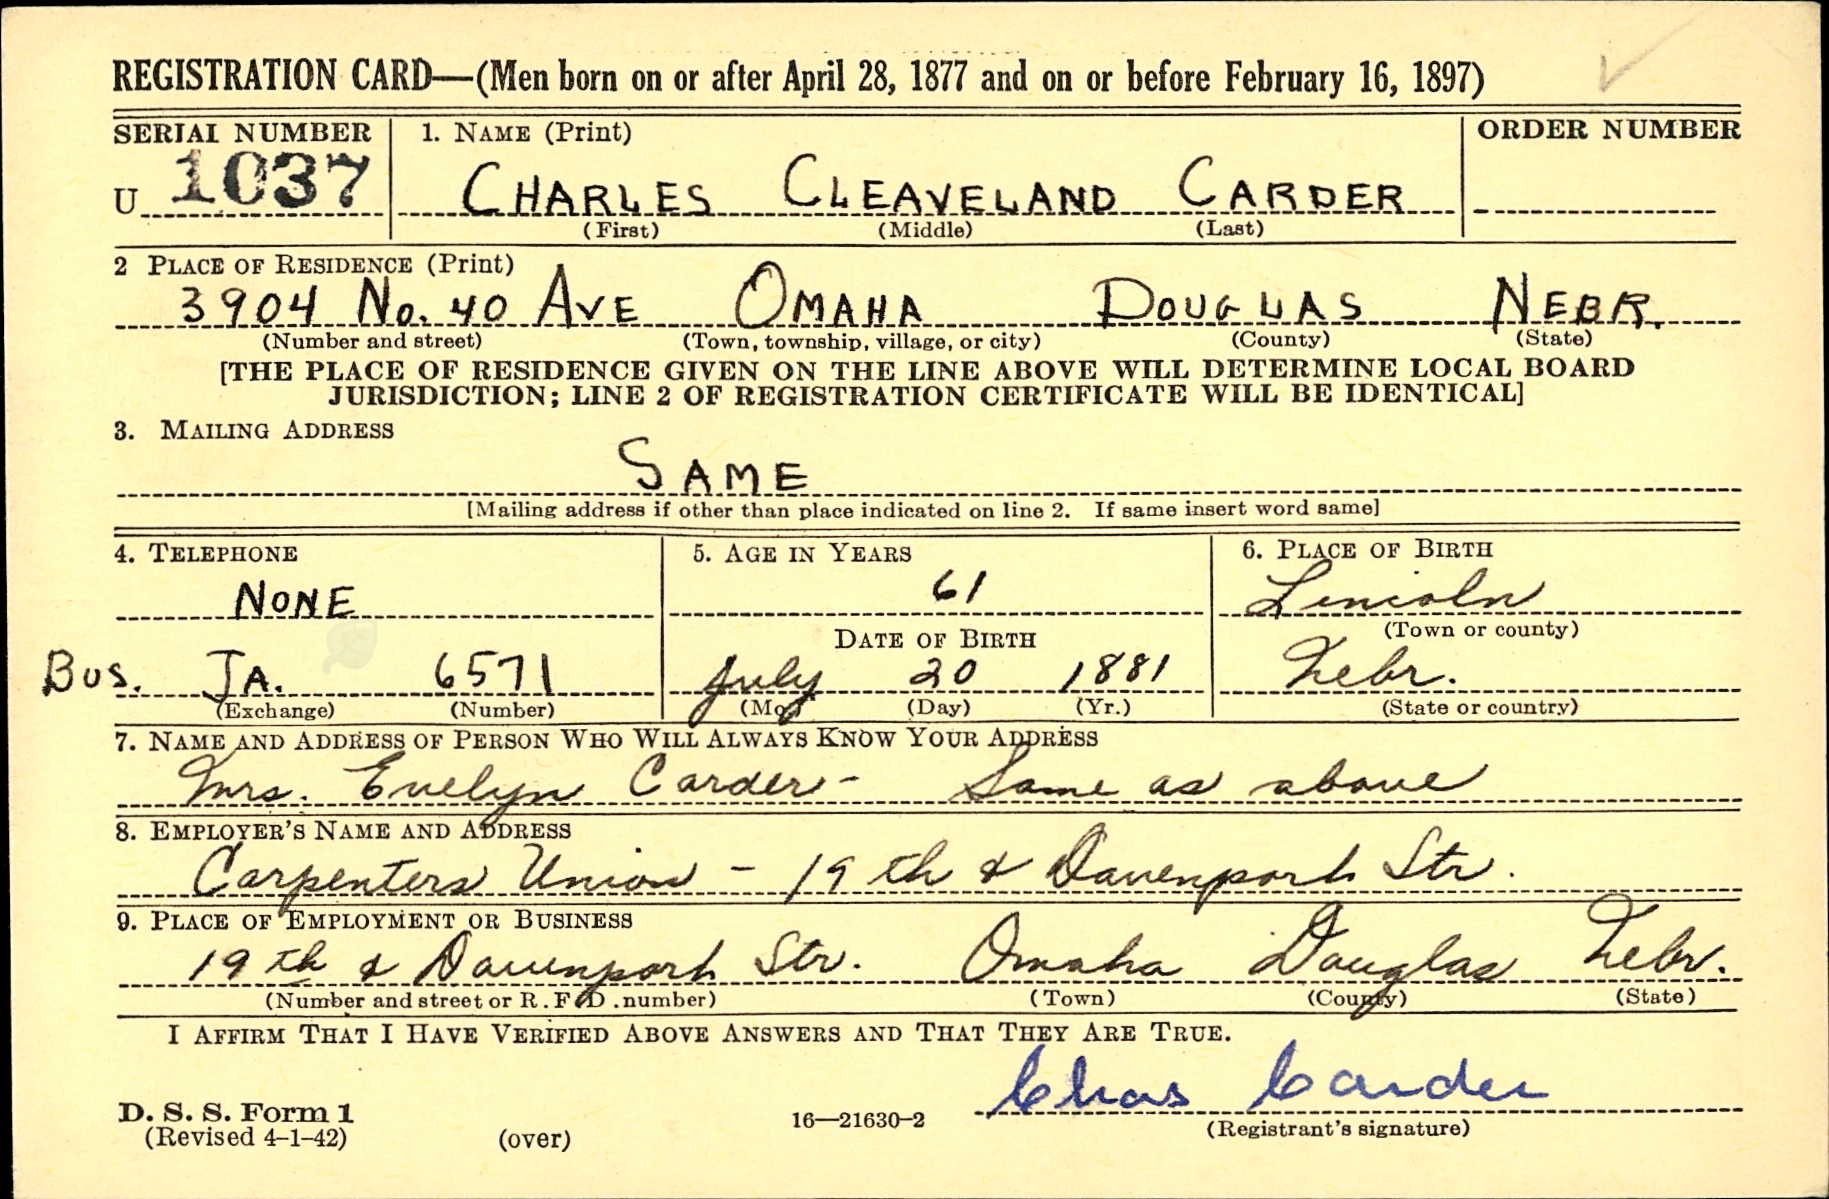 REGISTRATION CARD—(Men born on or after April 28, 1877 and on or before February 16, 1897)
SERIAL NUMBER 1. NAME (Print) ORDER NUMBER
U 1037 CHARLES CLEAVELAND CARDER
(First) (Middle) (Last)
2 PLACE OF RESIDENCE (Print)
3904 No. 40 AVE OMAHA DOUGLAS NEBR.
(Number and street) (Town, township, village, or city) (County) (State)
[THE PLACE OF RESIDENCE GIVEN ON THE LINE ABOVE WILL DETERMINE LOCAL BOARD
JURISDICTION; LINE 2 OF REGISTRATION CERTIFICATE WILL BE IDENTICAL]
3. MAILING ADDRESS
SAME
[Mailing address if other than place indicated on line 2. If same insert word same]
4. TELEPHONE 5. AGE IN YEARS 6. PLACE OF BIRTH
NONE 61 Lincoln
DATE OF BIRTH (Town or county)
BUS. JA. 6571 July 20 1881 Nebr.
(Exchange) (Number) (Mo.) (Day) (Yr.) (State or country)
7. NAME AND ADDRESS OF PERSON WHO WILL ALWAYS KNOW YOUR ADDRESS
Mrs. Evelyn Carder - Same as above
8. EMPLOYER'S NAME AND ADDRESS
Carpenters Union - 19th & Davenport Str.
9. PLACE OF EMPLOYMENT OR BUSINESS
19th & Davenport Str. Omaha Douglas Nebr.
(Number and street or R. F. D. number) (Town) (County) (State)
I AFFIRM THAT I HAVE VERIFIED ABOVE ANSWERS AND THAT THEY ARE TRUE.
Chas Carder
D. S. S. Form 1 16—21630-2
(Revised 4-1-42) (over) (Registrant's signature)